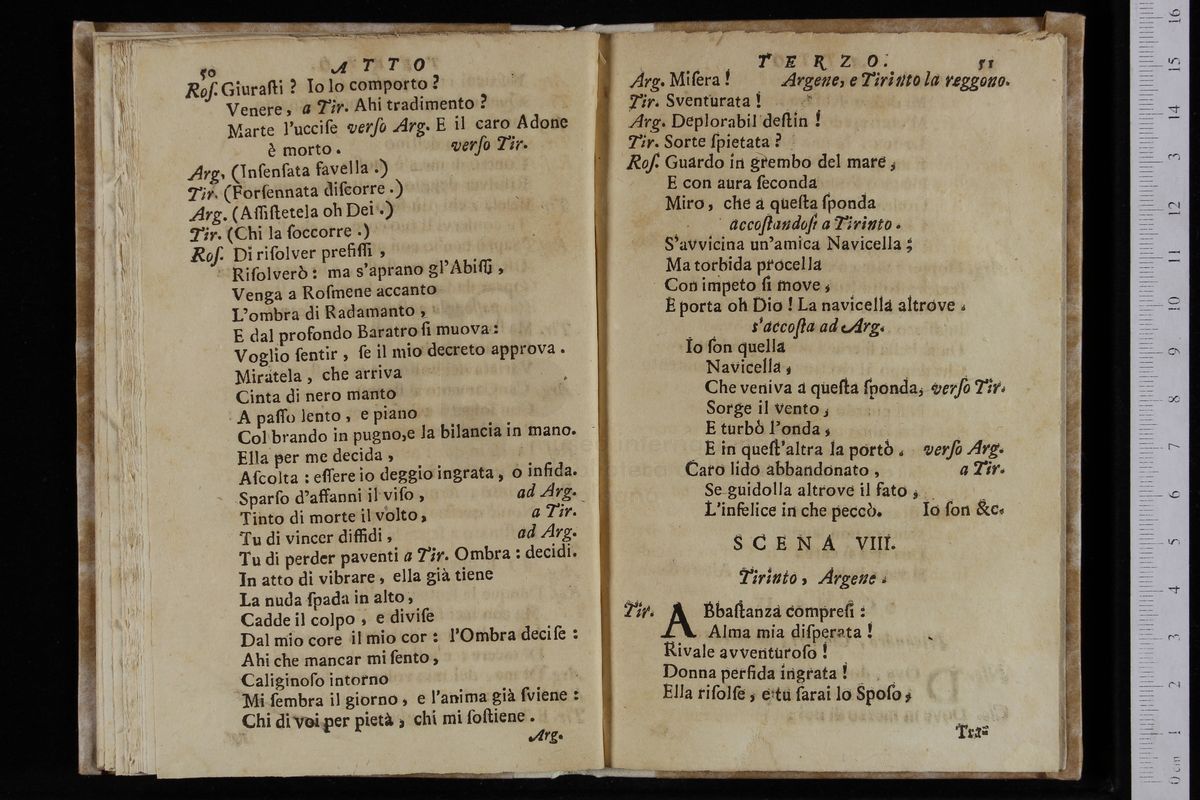 50 ATTO
Roſ. Giuraſti ? Io lo comporto ?
Venere, a Tir. Ahi tradimento ?
Marte l'ucciſe verſo Arg. E il caro Adone
è morto. verſo Tir.
Arg. (Inſenſata favella.)
Tir. (Forſennata diſcorre.)
Arg. (Aſſiſtetela oh Dei.)
Tir. (Chi la ſoccorre.)
Roſ. Di riſolver prefiſſi,
Riſolverò : ma s'aprano gl'Abiſſi,
Venga a Roſmene accanto
L'ombra di Radamanto,
E dal profondo Baratro ſi muova :
Voglio ſentir, ſe il mio decreto approva.
Miratela, che arriva
Cinta di nero manto
A paſſo lento, e piano
Col brando in pugno,e la bilancia in mano.
Ella per me decida,
Aſcolta : eſſere io deggio ingrata, o infida.
Sparſo d'affanni il viſo, ad Arg.
Tinto di morte il volto, a Tir.
Tu di vincer diffidi, ad Arg.
Tu di perder paventi a Tir. Ombra : decidi.
In atto di vibrare, ella già tiene
La nuda ſpada in alto,
Cadde il colpo, e diviſe
Dal mio core il mio cor : l'Ombra deciſe :
Ahi che mancar mi ſento,
Caliginoſo intorno
Mi ſembra il giorno, e l'anima già ſviene :
Chi di voi per pietà, chi mi ſoſtiene.
Arg.
TERZO. 51
Arg. Miſera ! Argene, e Tirinto la reggono.
Tir. Sventurata !
Arg. Deplorabil deſtin !
Tir. Sorte ſpietata ?
Roſ. Guardo in grembo del mare,
E con aura ſeconda
Miro, che a queſta ſponda
accoſtandoſi a Tirinto.
S'avvicina un'amica Navicella ;
Ma torbida procella
Con impeto ſi move,
E porta oh Dio ! La navicella altrove.
s'accoſta ad Arg.
Io ſon quella
Navicella,
Che veniva a queſta ſponda, verſo Tir.
Sorge il vento,
E turbò l'onda,
E in queſt'altra la portò. verſo Arg.
Caro lido abbandonato, a Tir.
Se guidolla altrove il fato,
L'infelice in che peccò. Io ſon &c.
SCENA VIII.
Tirinto, Argene.
Tir. ABbaſtanza compreſi :
Alma mia diſperata !
Rivale avventuroſo !
Donna perfida ingrata !
Ella riſolſe, e tu ſarai lo Spoſo,
Tra-